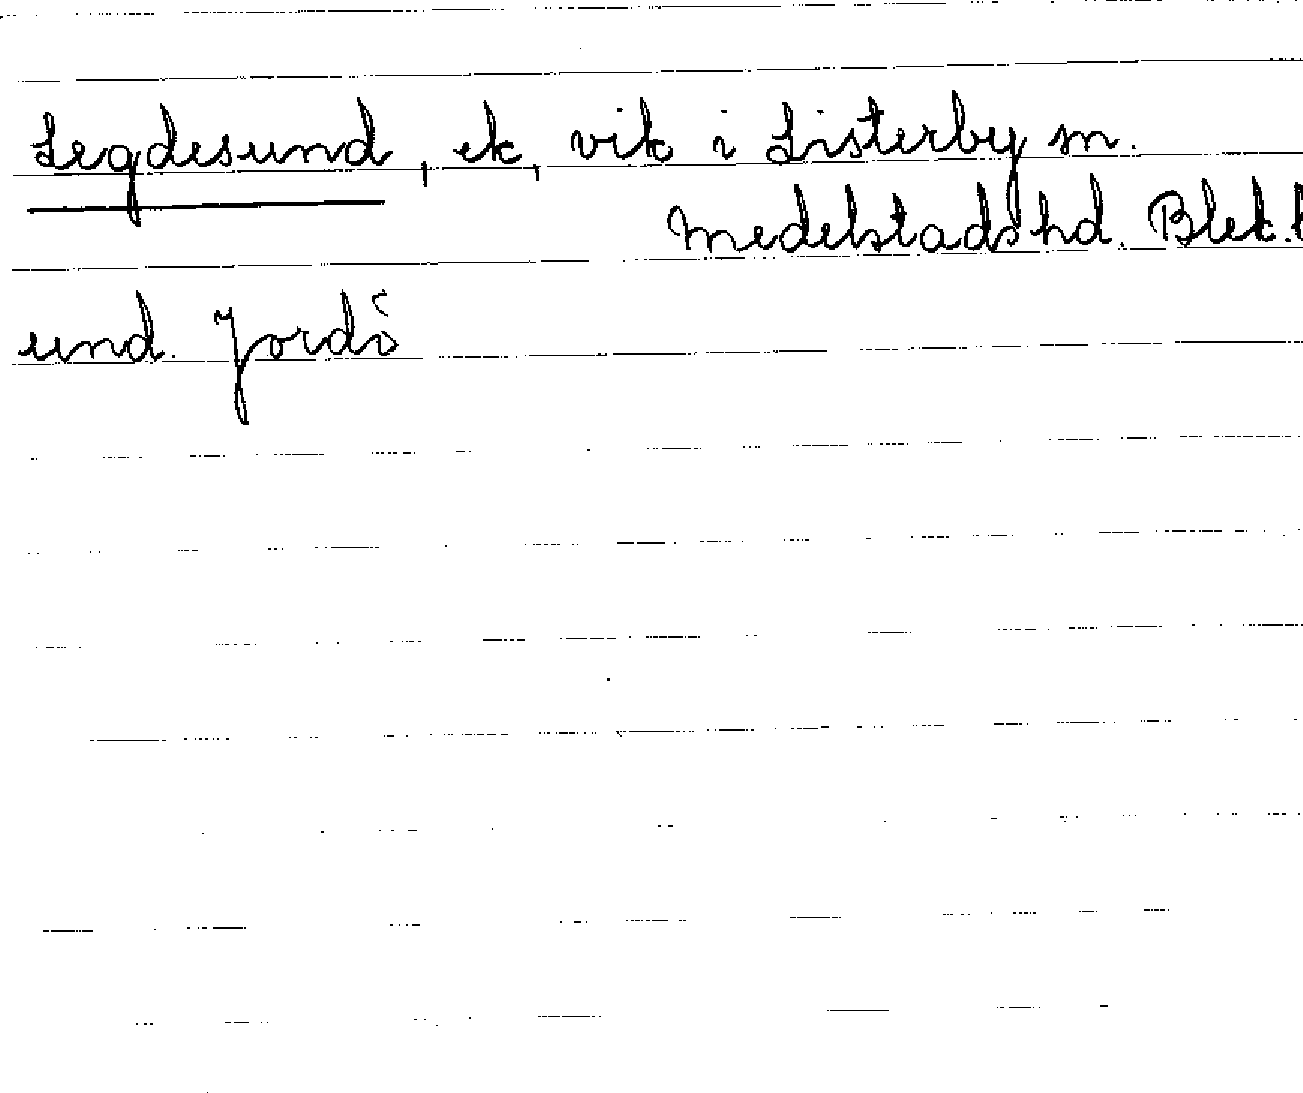 Legdesund, ek, vik i Listerby sn.
Medelstads hd. Blek. l
und. Jordö